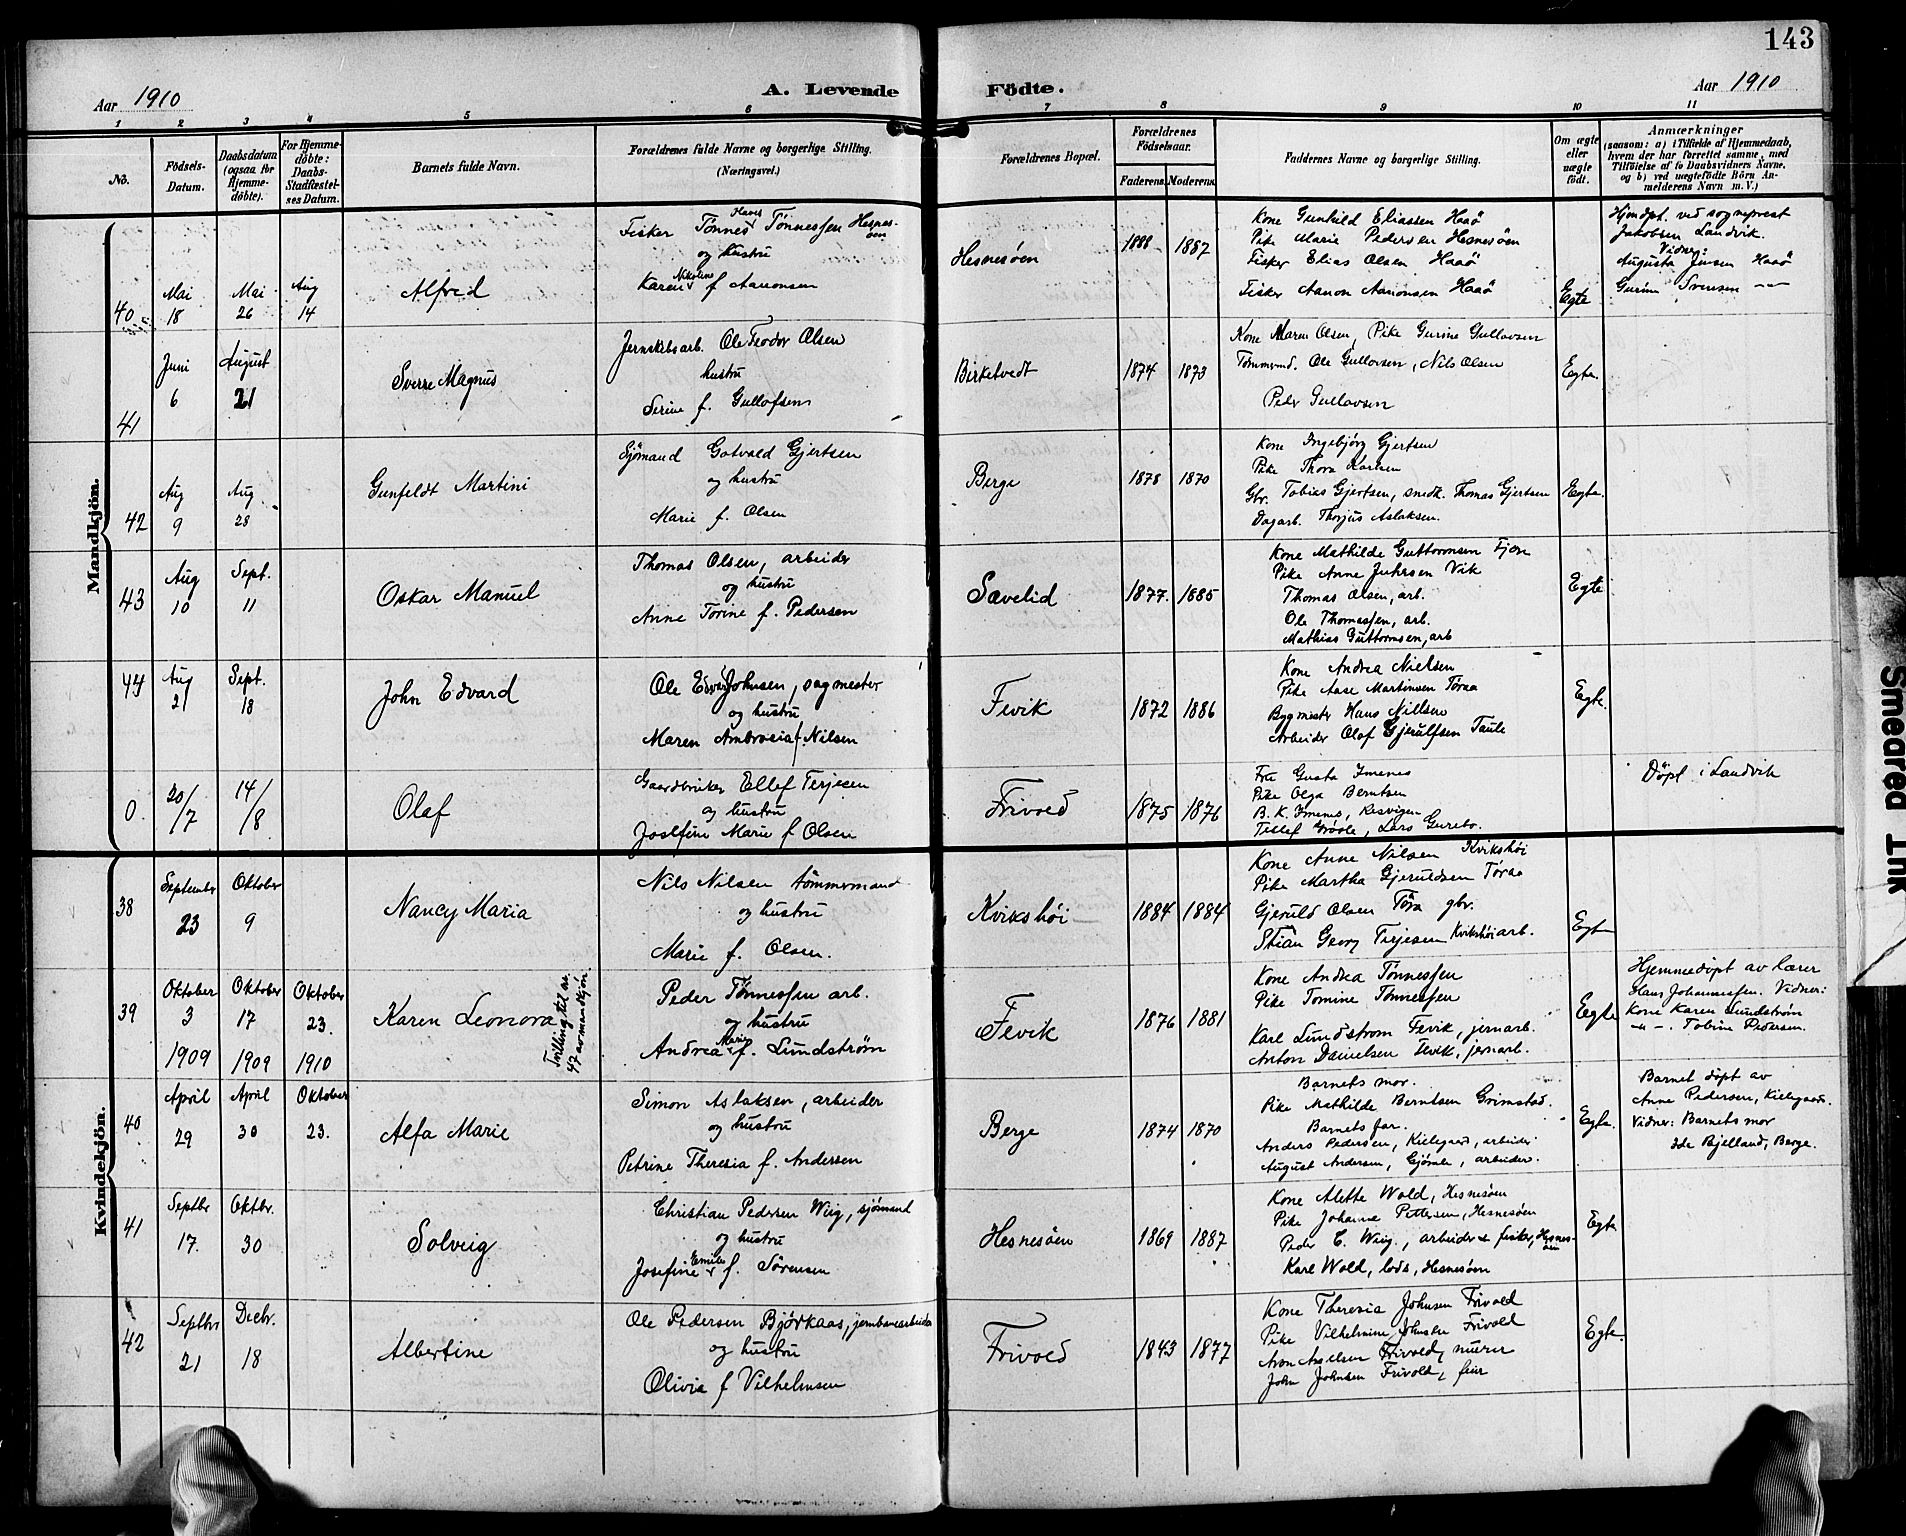 143
Aar 1910
A. Levende Födte.
Aar 1910
1 2 3 4 5 6 7 8 9 10 11
No.
Födsels-Datum.
Daabsdatum (ogsaa for Hjemme-döbte).
For Hjemme-döbte: Daabs-Stadfæstel-ses Datum.
Barnets fulde Navn.
Forældrenes fulde Navne og borgerlige Stilling. (Næringsvei.)
Forældrenes Bopæl.
Forældrenes Födselsaar.
Faderens. Moderens.
Faddernes Navne og borgerlige Stilling.
Om ægte eller uægte födt.
Anmærkninger
(saasom: a) i Tilfælde af Hjemmedaab, hvem der har forrettet samme, med Tilföielse af to Daabsvidners Navne, og b) ved uægtefödte Börn An-melderens Navn m. V.)
Mandkjön.
40
Mai 18
Mai 26
Aug 14
Alfred
Fisker Tønnes Tønnessen Hesnes-öen
og hustru
Karen Nikoline f Aanonsen
Hesnesöen
1888 1887
Kone Gunhild Eliassen Haaö
Pike Marie Pedersen Hesnesöen
Fisker Elias Olsen Haaö
Fisker Aanon Aanonsen Haaö
Egte
Hjmdpt. ved sogneprest
Jakobsen Landvik.
Vidner:
Augusta Jensen Haaö
Gurine Svensen -"-
41
Juni 6
August 21
Sverre Magnus
Jernskibsarb. Ole Teodor Olsen
hustru
Serine f. Gullofsen
Birketvedt
1874 1873
Kone Maren Olsen, Pike Gurine Gullovsen
Tømmermd. Ole Gullovsen, Nils Olsen
Peder Gullovsen
Egte.
42
Aug 9
Aug 28
Gunfeldt Martini
Sjömand Gotvald Gjertsen
og hustru
Marie f. Olsen
Berge
1878 1870
Kone Ingebjörg Gjertsen
Pike Thora Karlsen
Gbr. Tobias Gjertsen, snedk. Thomas Gjertsen
Dagarb. Thorjus Aslaksen.
Egte.
43
Aug 10
Sept. 11
Oskar Manuel
Thomas Olsen, arbeider
og hustru
Anne Torine f. Pedersen
Sævelid
1877. 1885
Kone Mathilde Guttormsen Fjære
Pike Anne Juhrsen Vik
Thomas Olsen, arb.
Ole Thomassen, arb.
Mathias Guttormsen, arb
Egte
44
Aug 21
Sept. 18
John Edvard
Ole Edvard Johnsen, sagmester
og hustru
Maren Ambrosia f. Nilsen
Fevik
1872 1886
Kone Andrea Nielsen
Pike Aase Martinsen Töraa
Bygmester Hans Nielsen
Arbeider Olaf Gjerulfsen Taule
Egte.
0.
20/7
14/8
Olaf
Gaardbruker Ellef Terjesen
og hustru
Josefine Marie f Olsen
Frivold
1875 1876
Fru Gusta Imenes
Pike Olga Berntsen
B. K. Imenes, Resvigen
Tellef Gröole, Lars Gurebo.
Döpt i Landvik
Kvindekjön.
38
September 23
Oktober 9
Nancy Maria
Nils Nilsen tömmermand
og hustru
Marie f. Olsen.
Kvikshöi
1884 1884
Kone Anne Nilsen Kvikshöi
Pike Martha Gjeruldsen Töraa
Gjeruld Olsen Töra gbr.
Stian Georg Terjesen Kvikshöi arb.
Egte
39
Oktober 3
Oktober 17
Oktober 23.
Karen Leonora
Tvilling til no. 47 av mandkjøn.
Peder Tønnessen arb.
og hustru
Andrea Marie f. Lundstrøm
Fevik
1876 1881
Kone Andrea Tønnessen
Pike Tomine Tønnessen
Karl Lundstrøm Fevik, jernarb.
Anton Danielsen Fevik, jernarb.
Egte
Hjemmedöpt av lærer
Hans Johannessen. Vidner:
Kone Karen Lundström
-"- . Tobine Pedersen.
40
1909 April 29
1909 April 30
1910 Oktober 23.
Alfa Marie
Simon Aslaksen, arbeider
og hustru
Petrine Theresia f. Andersen
Berge
1874 1870
Barnets mor.
Pike Mathilde Berntsen Grimstad.
Barnets far.
Anders Pedersen, Kielegaard, arbeider.
August Andersen, Gjömle, arbeider.
Egte.
Barnet döpt av
Anne Pedersen, Kielegaard.
Vidner: Barnets mor
Ida Bjelland, Berge.
41
Septbr 17.
Oktbr. 30
Solveig
Christian Pedersen Wiig, sjömand
og hustru
Josefine Emilie f. Sørensen
Hesnesöen
1869 1887
Kone Alette Wold, Hesnesöen
Pike Johanne Pettersen, Hesnesöen
Peder C. Wiig., arbeider & fisker, Hesnes-öen
Karl Wold, lods, Hesnesöen
Egte
42
Septbr 21
Decbr. 18
Albertine
Ole Pedersen Bjørkaas, jernbanearbeider
og hustru
Olivia f Vilhelmsen
Frivold
1843 1877
Kone Theresia Johnsen Frivold
Pike Vilhelmine Johnsen Frivold
Aron Axelsen Frivold, murer
John Johnsen Frivold, feier
Egte.
Smeared Ink